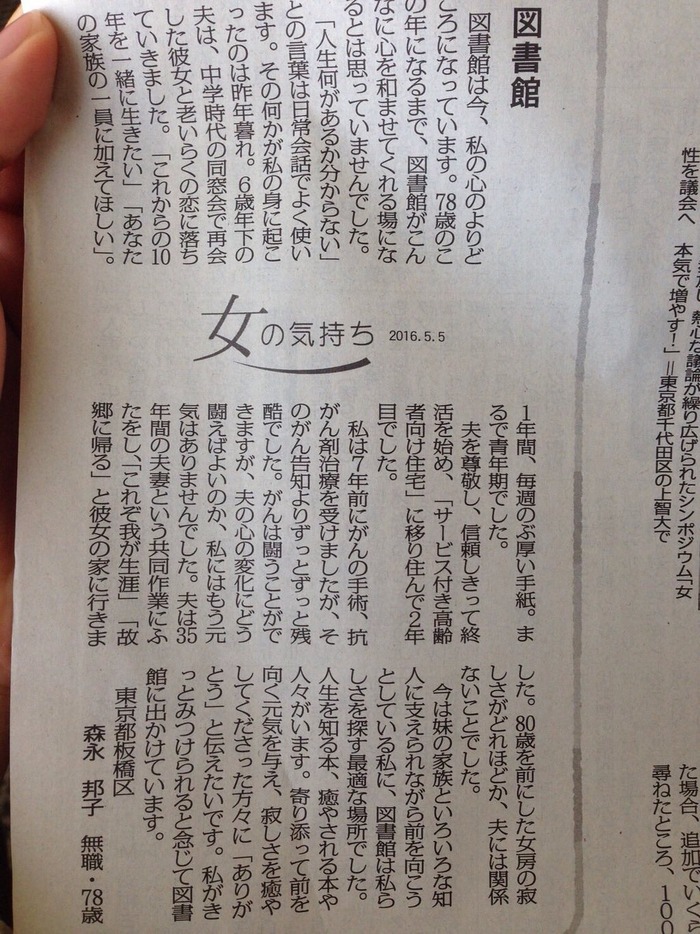 図書館
図書館は今、私の心のよりど
ころになっています。78歳のこ
の年になるまで、図書館がこん
なに心を和ませてくれる場にな
るとは思っていませんでした。
「人生何があるか分からない」
との言葉は日常会話でよく使い
ます。その何かが私の身に起こ
ったのは昨年暮れ。6歳年下の
夫は、中学時代の同窓会で再会
した彼女と老いらくの恋に落ち
ていきました。「これからの10
年を一緒に生きたい」「あなた
の家族の一員に加えてほしい」。
女の気持ち 2016.5.5
1年間、毎週のぶ厚い手紙。ま
るで青年期でした。
夫を尊敬し、信頼しきって終
活を始め、「サービス付き高齢
者向け住宅」に移り住んで2年
目でした。
私は7年前にがんの手術、抗
がん剤治療を受けましたが、そ
のがん告知よりずっとずっと残
酷でした。がんは闘うことがで
きますが、夫の心の変化にどう
闘えばよいのか、私にはもう元
気はありませんでした。夫は35
年間の夫妻という共同作業にふ
たをし、「これぞ我が生涯」「故
郷に帰る」と彼女の家に行きま
した。80歳を前にした女房の寂
しさがどれほどか、夫には関係
ないことでした。
今は妹の家族といろいろな知
人に支えられながら前を向こう
としている私に、図書館は私ら
しさを探す最適な場所でした。
人生を知る本、癒やされる本や
人々がいます。寄り添って前を
向く元気を与え、寂しさを癒や
してくださった方々に「ありが
とう」と伝えたいです。私がき
っとみつけられると念じて図書
館に出かけています。
東京都板橋区
森永 邦子 無職・78歳
熱心な議論が繰り広げられたシンポジウム「女
性を議会へ 本気で増やす!」=東京都千代田区の上智大で
た場合、追加でいくら
尋ねたところ、100